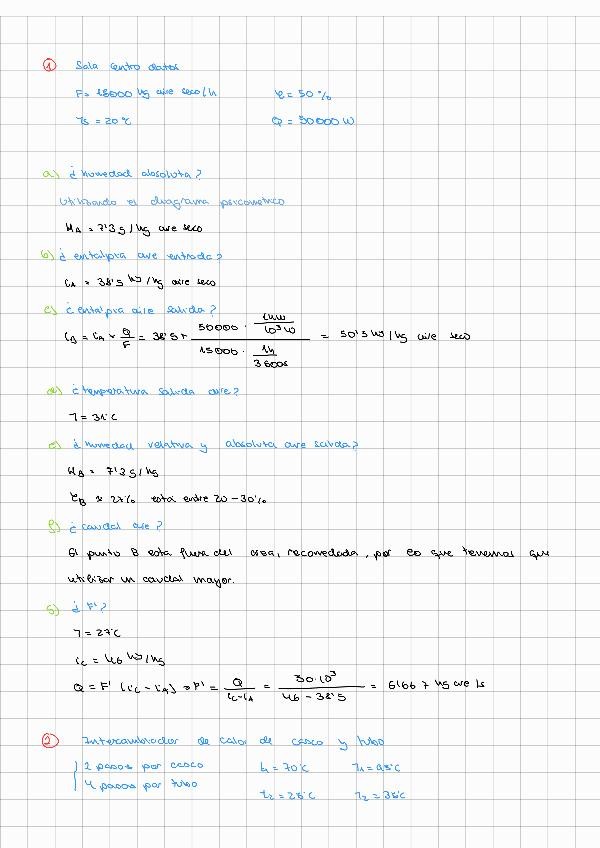 ① Sala centro datos
F = 15000 kg aire seco/h    φ = 50 %
Ts = 20°C    Q = 50000 W
a) ¿humedad absoluta?
Utilizando el diagrama psicométrico
HA = 7'3 g/kg aire seco
b) ¿entalpia aire entrada?
iA = 38'5 kJ/kg aire seco
c) ¿entalpia aire salida?
iB = iA + Q/F = 38'5 + (50000 · 1kW/10³W) / (15000 · 1h/3600s) = 50'5 kJ/kg aire seco
d) ¿temperatura salida aire?
T = 31°C
e) ¿humedad relativa y absoluta aire salida?
HB = 7'3 g/kg
φB ≈ 27% esta entre 20-30%
f) ¿caudal aire?
El punto B esta fuera del area, recomedada, por lo que tenemos que
utilizar un caudal mayor.
g) ¿F'?
T = 27°C
ic = 46 kJ/kg
Q = F' (ic - iA) ⇒ F' = Q/(ic-iA) = 50·10³/(46 - 38'5) = 6'667 kg aire/s
② Intercambiador de calor de casco y tubo
2 pasos por casco    t1 = 70°C    T1 = 95°C
4 pasos por tubo    t2 = 25°C    T2 = 35°C